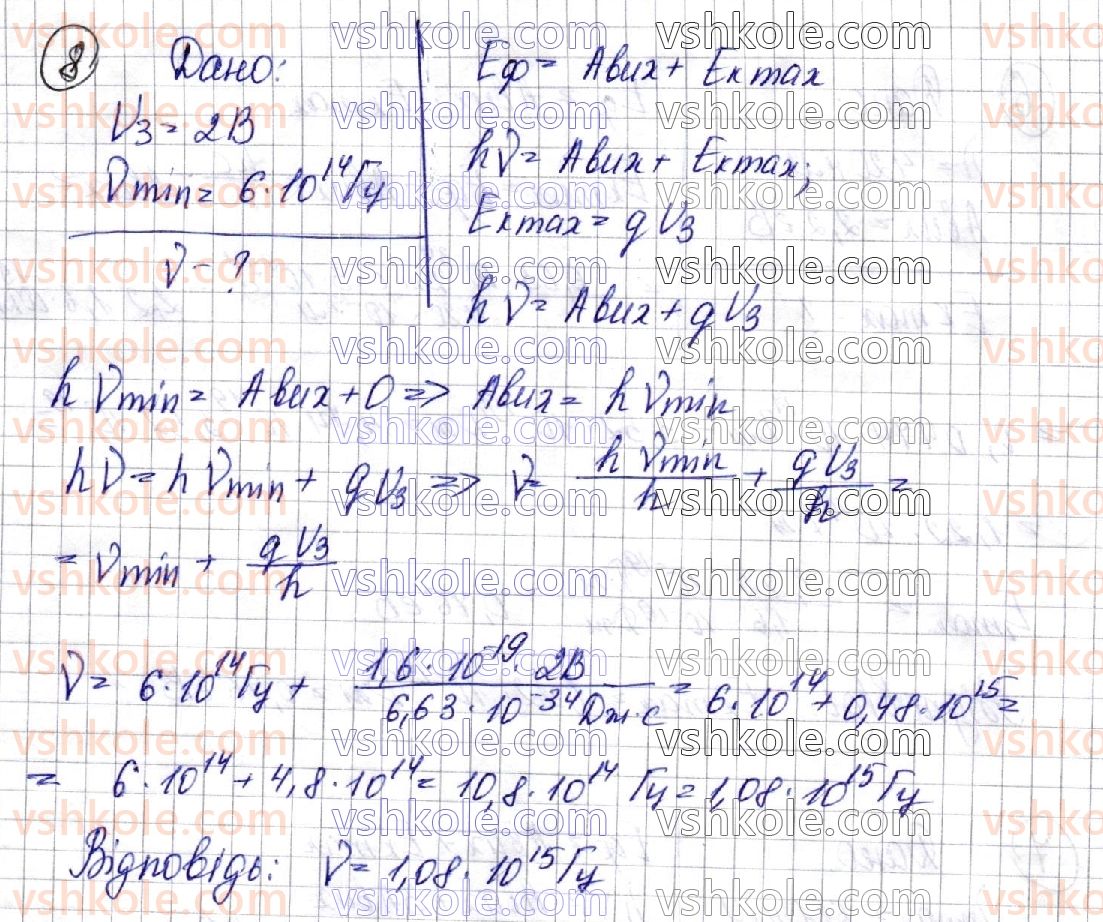 8 Дано:
U₃ = 2В
νmin = 6·10¹⁴ Гц
ν - ?
Eф = Aвих + Eкmax
hν = Aвих + Eкmax;
Eкmax = qU₃
hν = Aвих + qU₃
hνmin = Aвих + 0 => Aвих = hνmin
hν = hνmin + qU₃ => ν = hνmin/h + qU₃/h =
= νmin + qU₃/h
ν = 6·10¹⁴ Гц + 1,6·10⁻¹⁹·2В / 6,63·10⁻³⁴ Дж·с = 6·10¹⁴ + 0,48·10¹⁵ =
= 6·10¹⁴ + 4,8·10¹⁴ = 10,8·10¹⁴ Гц = 1,08·10¹⁵ Гц
Відповідь: ν = 1,08·10¹⁵ Гц
vshkole.com